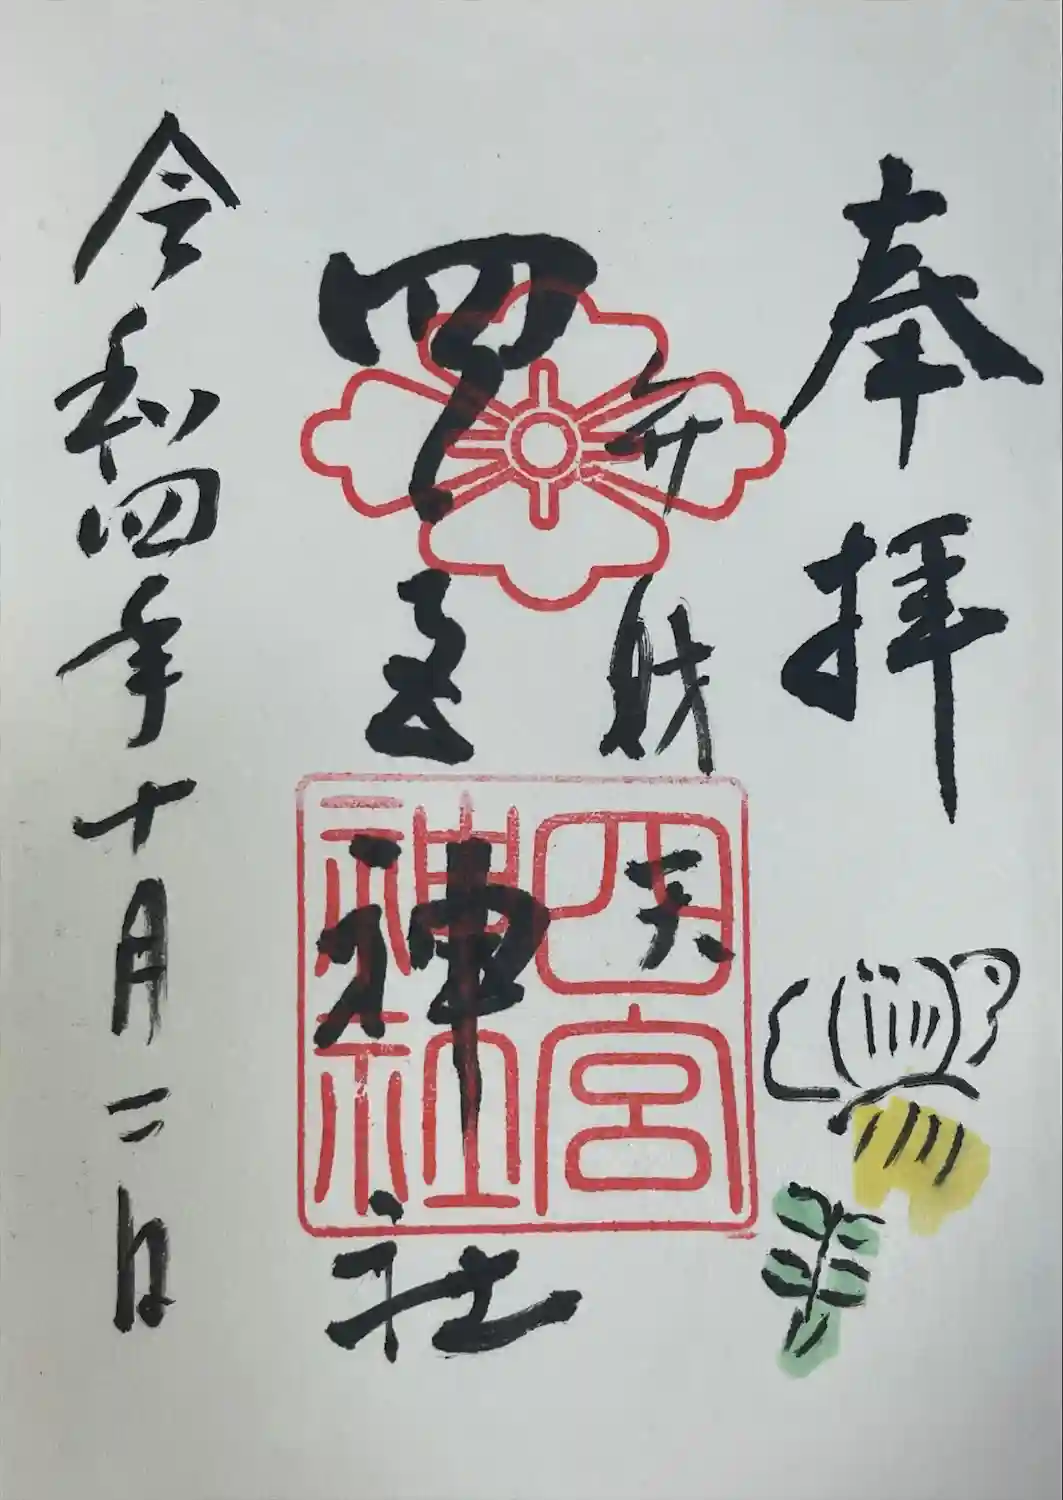 奉拝
弁財天
四宮神社
四宮
神社
令和四年十月二日